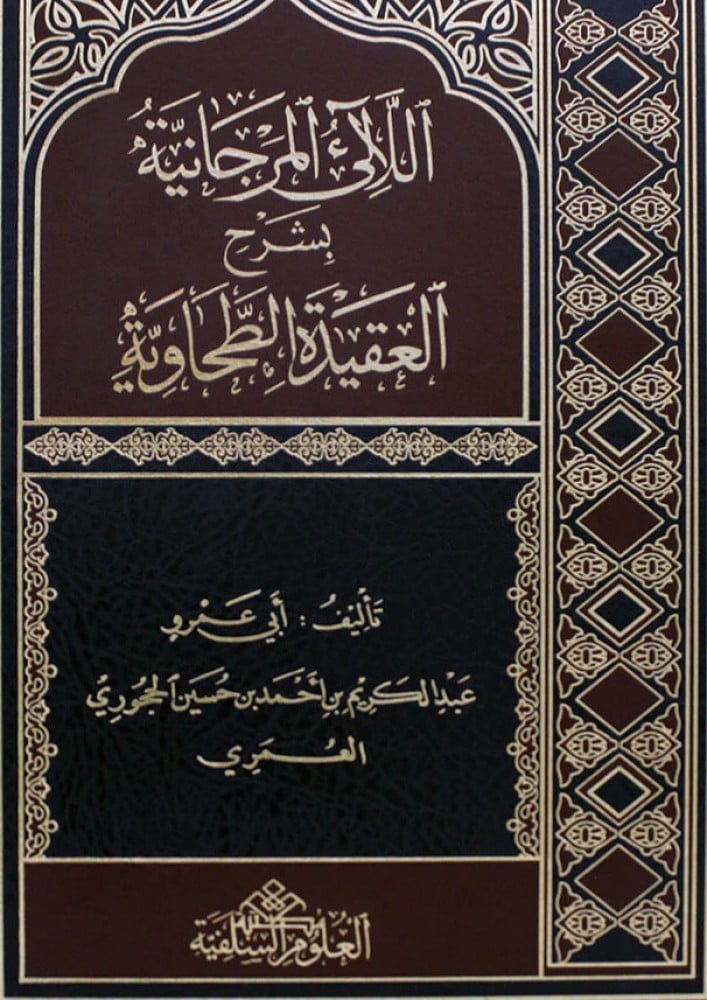 اللَّآلِئُ المَرْجَانِيَّةُ
بِشَرْحِ
العَقِيدَةِ الطَّحَاوِيَّةِ
تَأْلِيفُ: أَبِي عَمْرٍو
عَبْدِ الكَرِيمِ بنِ أَحْمَدَ بنِ حُسَيْنٍ الحَجُورِيِّ
العُمَرِي
العُلُومُ السَّلَفِيَّة